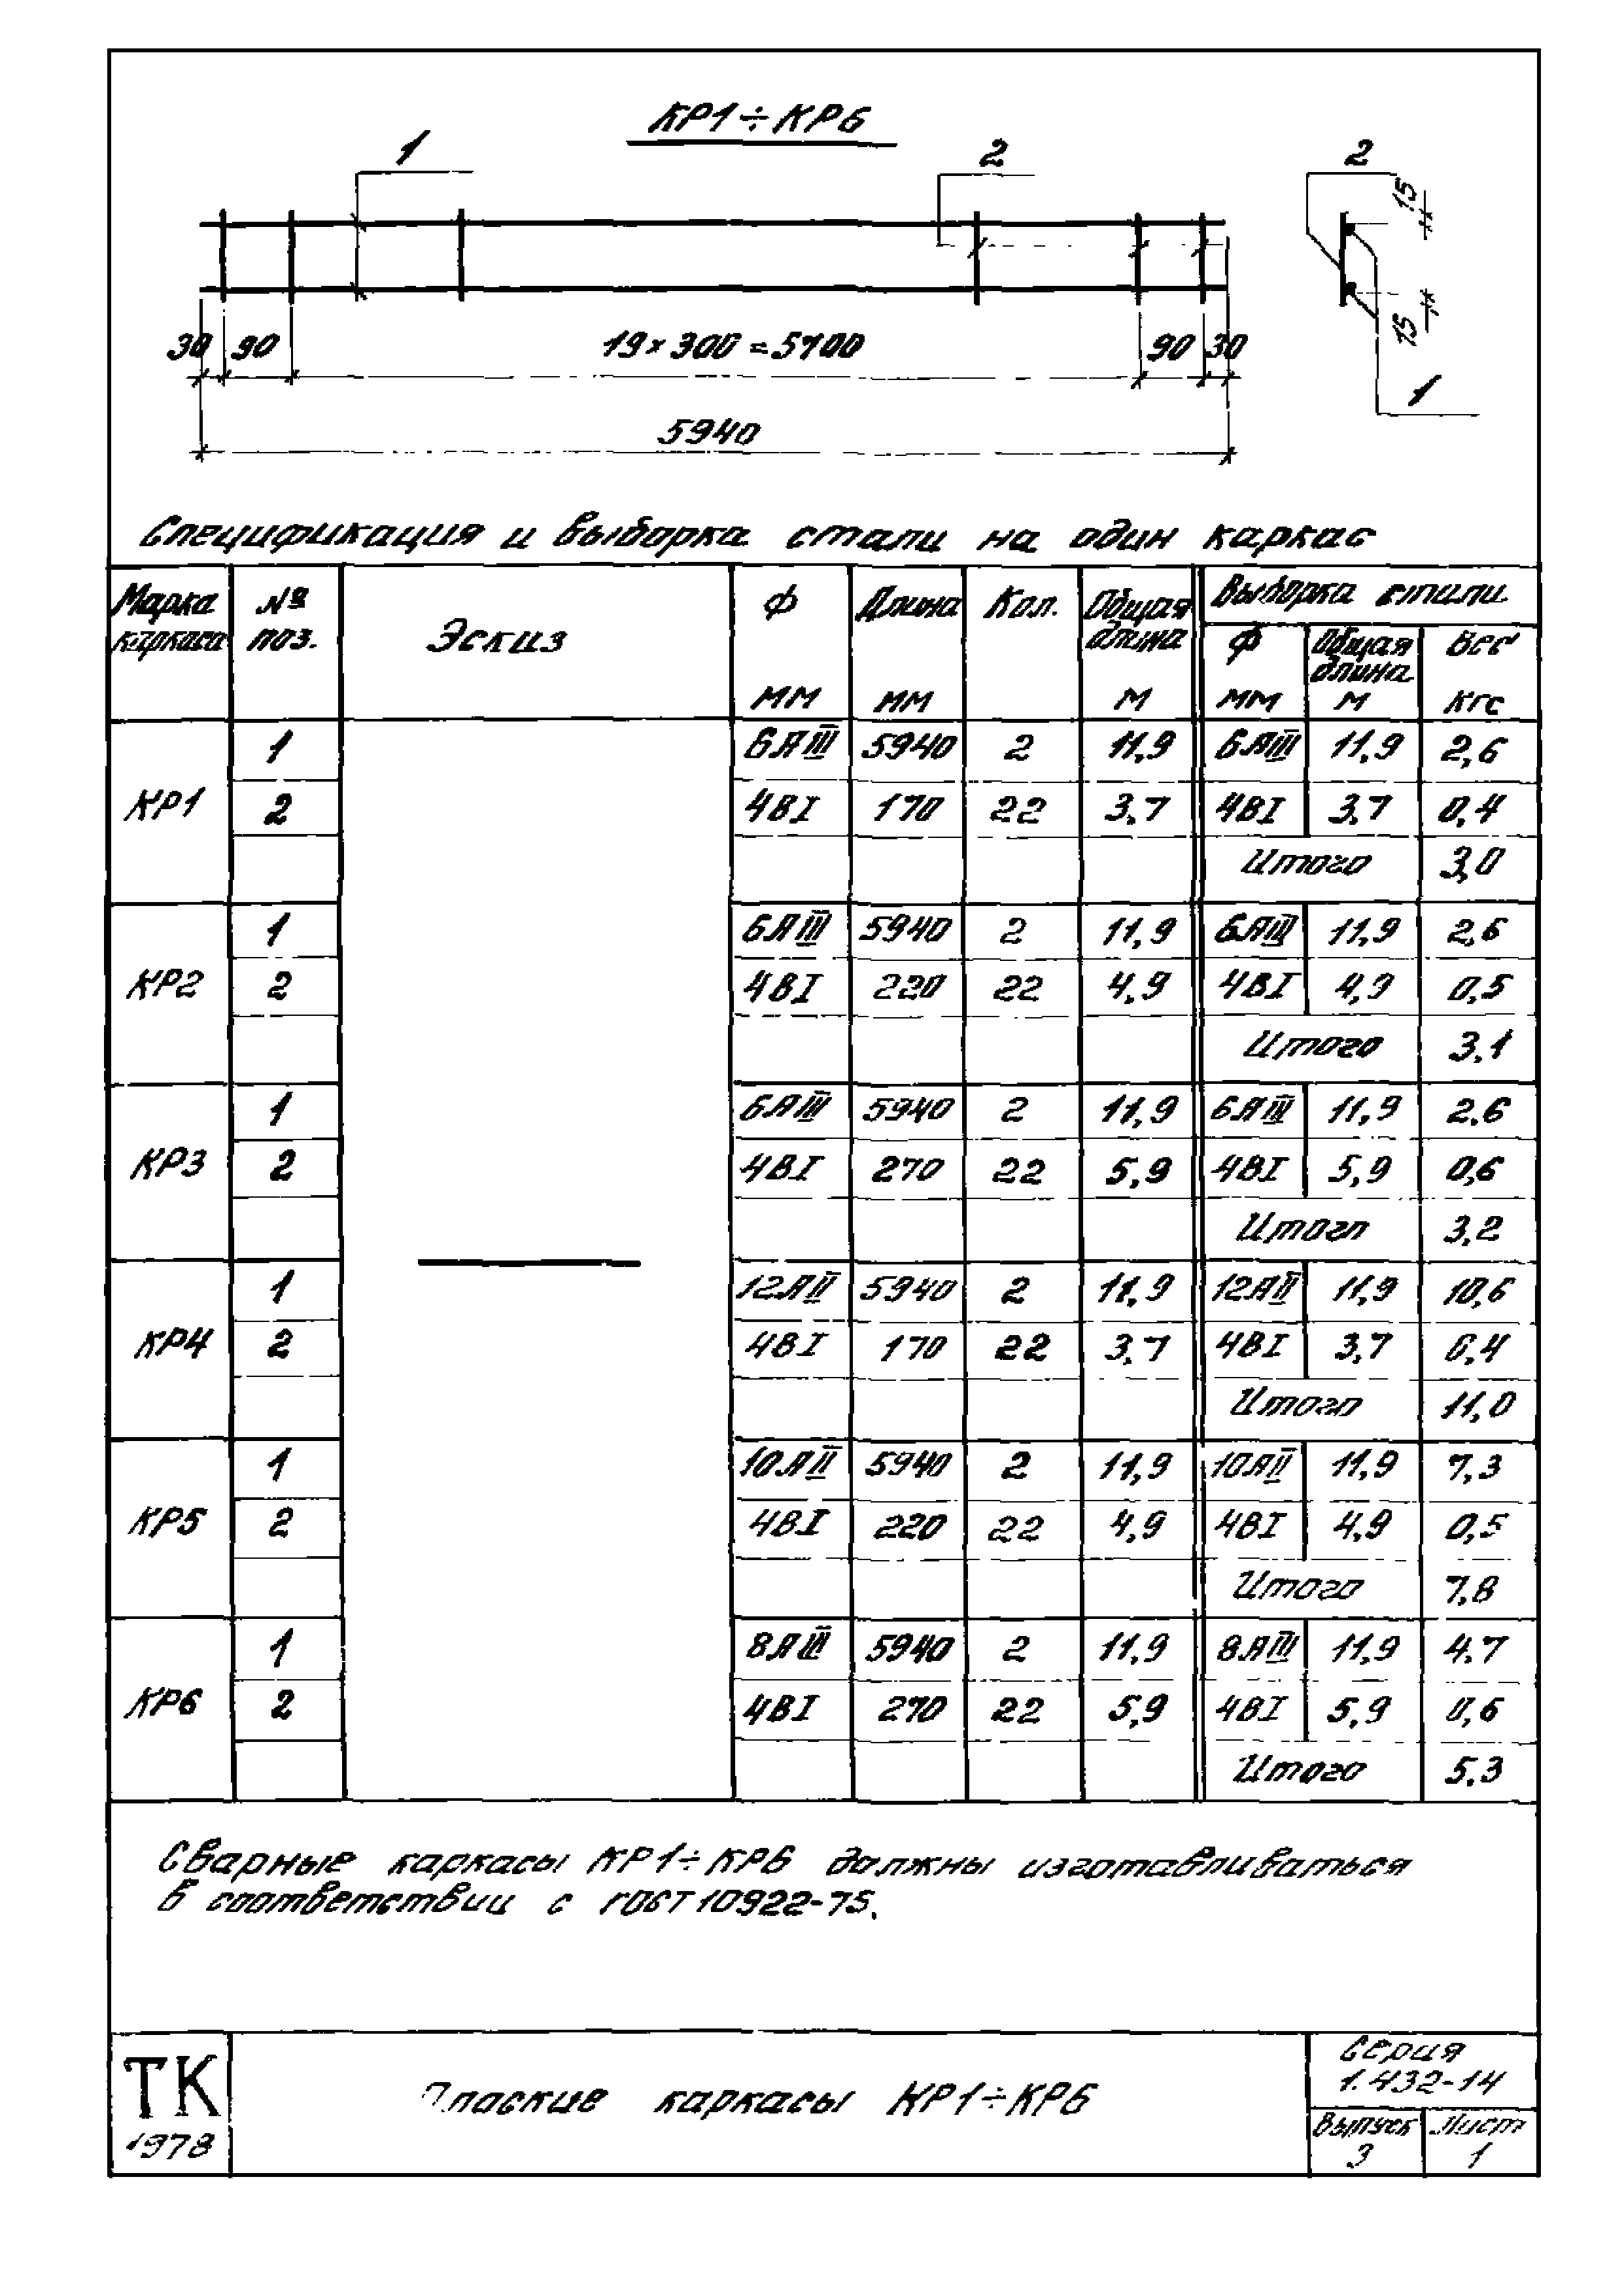 КР1÷КР6
1 2 2
15
15
1
30 90 19×300=5700 90 30
5940
Спецификация и выборка стали на один каркас
Марка каркаса № поз. Эскиз Ф мм Длина мм Кол. Общая длина м Выборка стали
Ф мм Общая длина м Вес кгс
КР1 1 6АIII 5940 2 11,9 6АIII 11,9 2,6
2 4ВI 170 22 3,7 4ВI 3,7 0,4
Итого 3,0
КР2 1 6АIII 5940 2 11,9 6АIII 11,9 2,6
2 4ВI 220 22 4,9 4ВI 4,9 0,5
Итого 3,1
КР3 1 6АIII 5940 2 11,9 6АIII 11,9 2,6
2 4ВI 270 22 5,9 4ВI 5,9 0,6
Итого 3,2
КР4 1 12АII 5940 2 11,9 12АII 11,9 10,6
2 4ВI 170 22 3,7 4ВI 3,7 0,4
Итого 11,0
КР5 1 10АII 5940 2 11,9 10АII 11,9 7,3
2 4ВI 220 22 4,9 4ВI 4,9 0,5
Итого 7,8
КР6 1 8АIII 5940 2 11,9 8АIII 11,9 4,7
2 4ВI 270 22 5,9 4ВI 5,9 0,6
Итого 5,3
Сварные каркасы КР1÷КР6 должны изготавливаться
в соответствии с ГОСТ 10922-75.
ТК
1978
Плоские каркасы КР1÷КР6
Серия
1.432-14
Выпуск Лист
3 1